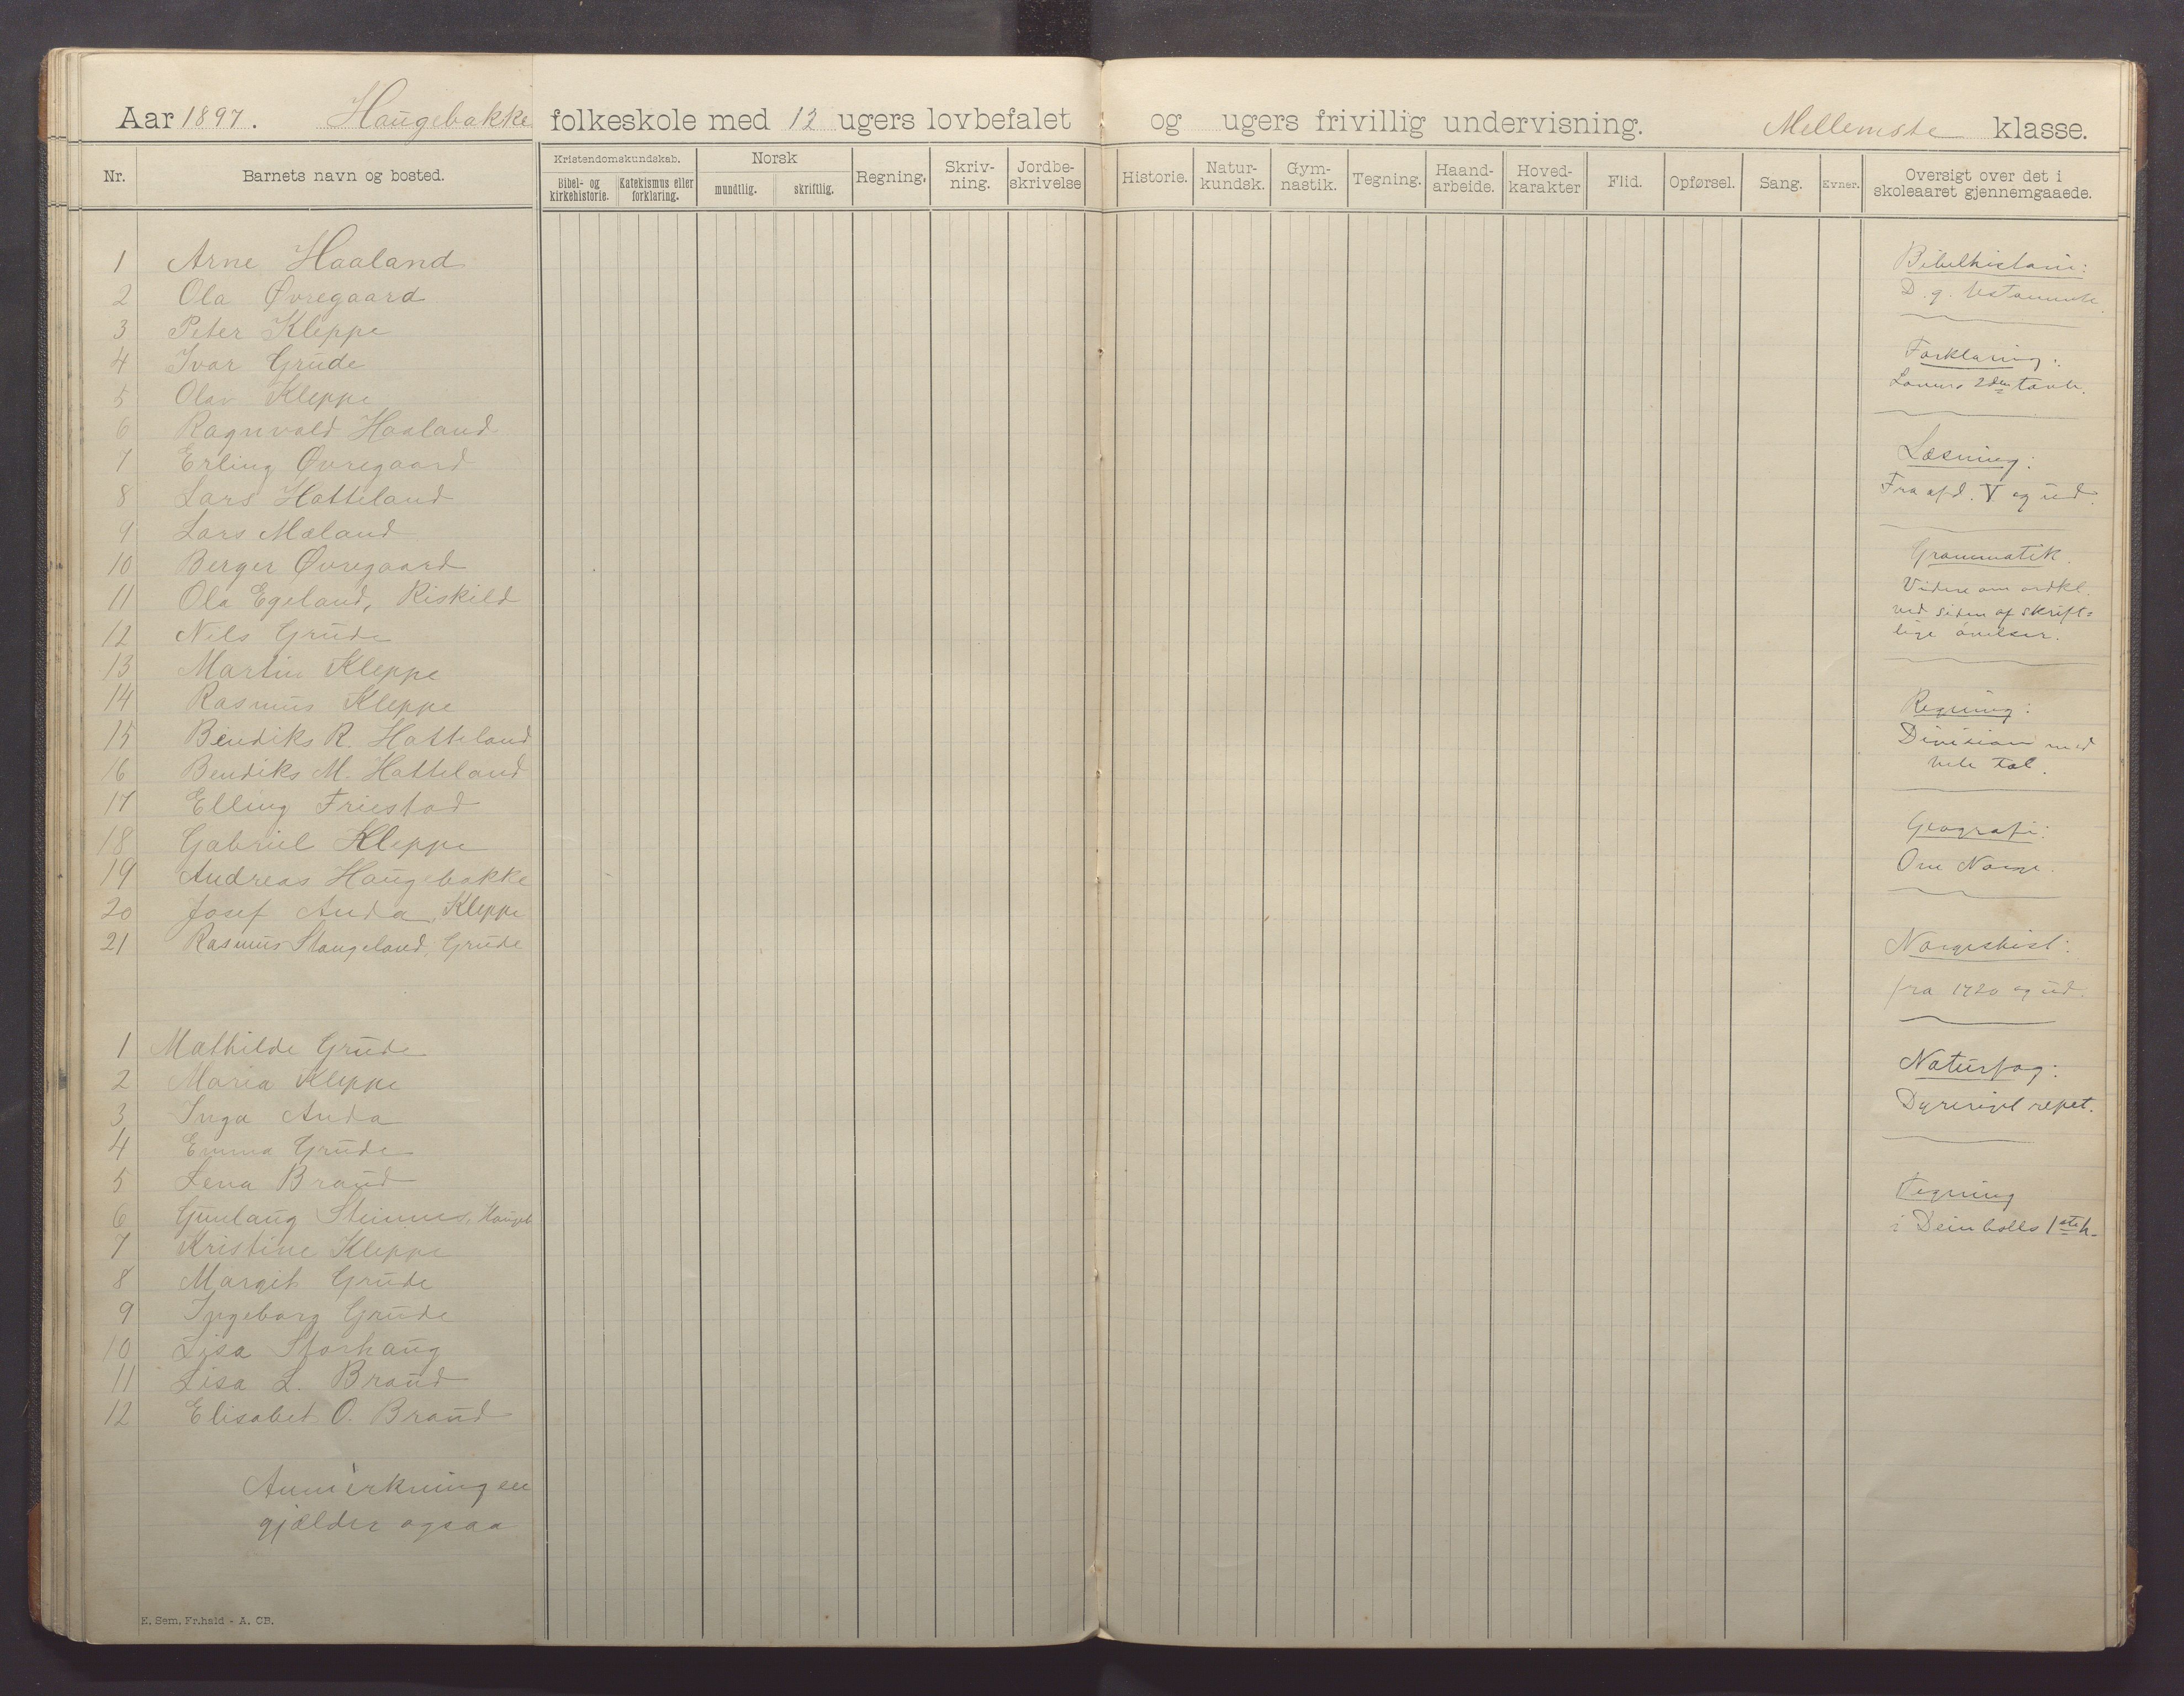 Aar 1897. Haugebakke folkeskole med 12 ugers lovbefalet og ugers frivillig undervisning. Mellemste klasse.
Nr. Barnets navn og bosted. Kristendomskundskab. Bibel- og kirkehistorie. Katekismus eller forklaring. Norsk mundtlig. skriftlig. Regning. Skriv-ning. Jordbe-skrivelse Historie. Natur-kundsk. Gym-nastik. Tegning. Haand-arbeide. Hoved-karakter Flid. Opførsel. Sang. Evner. Oversigt over det i skoleaaret gjennemgaaede.
1 Arne Haaland
2 Ola Øvregaard
3 Peter Kleppe
4 Ivar Grude
5 Olav Kleppe
6 Ragnvald Haaland
7 Erling Øvregaard
8 Lars Hatteland
9 Lars Mæland
10 Berger Øvregaard
11 Ola Egeland, Riskild
12 Nils Grude
13 Martin Kleppe
14 Rasmus Kleppe
15 Bendiks R. Hatteland
16 Bendiks M. Hatteland
17 Elling Friestad
18 Gabriel Kleppe
19 Andreas Haugebakke
20 Josef Anda, Kleppe
21 Rasmus Stangeland, Grude
1 Mathilde Grude
2 Maria Kleppe
3 Inga Anda
4 Emma Grude
5 Lena Braud
6 Gunlaug Steinnes, Haugeb
7 Kristine Kleppe
8 Margit Grude
9 Ingeborg Grude
10 Lisa Storhaug
11 Lisa L. Braud
12 Elisabet O. Braud
Anmerkningen
gjælder ogsaa
E. Sem, Fr.hald - A. CB.
Bibelhistorie:
D. g. testamente.
Forklaring:
Lovens 2den tavle.
Læsning:
Fra afd. V og ud.
Grammatik.
Videre om ordkl.
ved siden af skrift=
lige øvelser.
Regning:
Division med
hele tal.
Geografi:
Om Norge.
Norgeshist:
fra 1720 og ud.
Naturfag:
Dyreriget repet.
Tegning
i Deinbolls 1ste h.